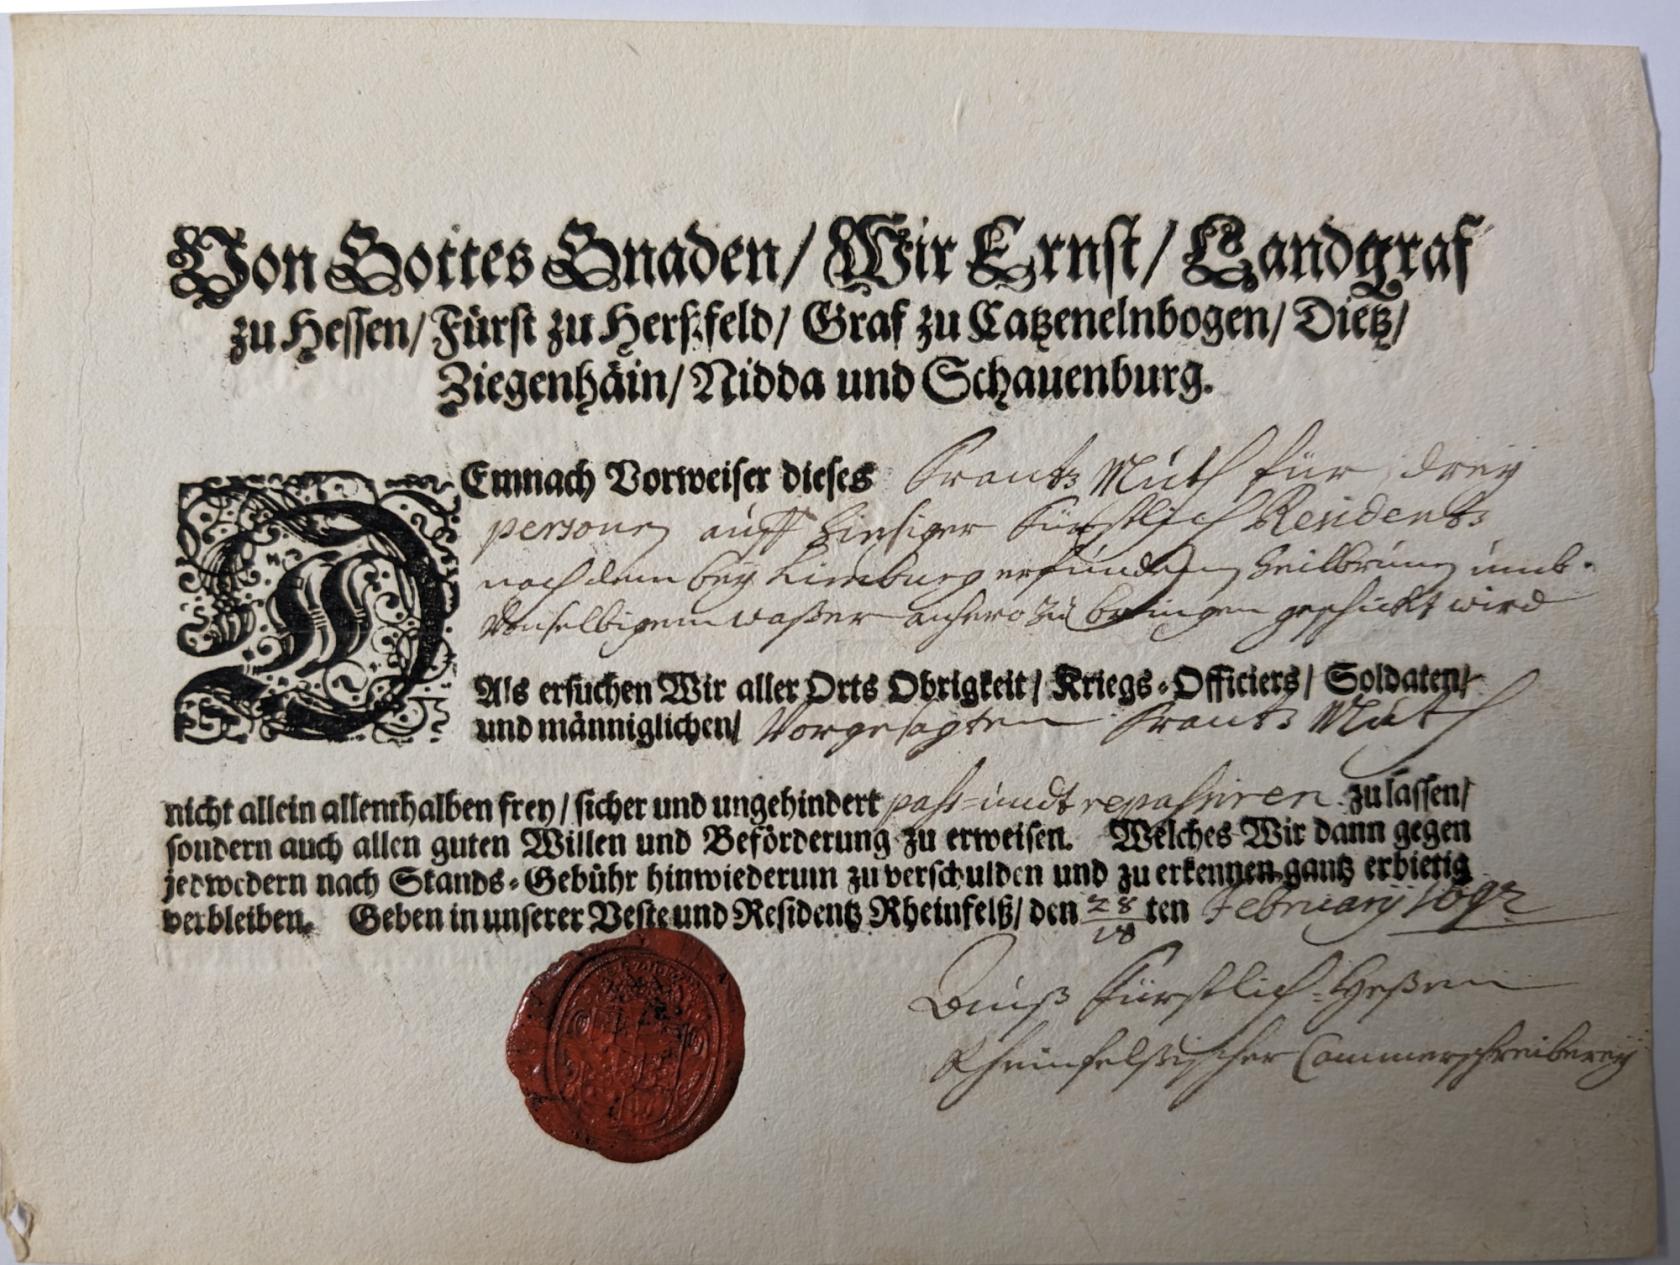 Von Gottes Gnaden/ Wir Ernst/ Landgraf
zu Hessen/ Fürst zu Herßfeld/ Graf zu Catzenelnbogen/ Dietz/
Ziegenhäin/ Nidda und Schauenburg.
DEmnach Vorweiser dieses Frantz Muth für drey
personen auff hiesiger Fürstlich Residentz
nach dem bey Limburg erfundenen Heilbrunen umb
denselbigem waßer anhero zu bringen geschickt wird
Als ersuchen Wir aller Orts Obrigkeit/ Kriegs-Officiers/ Soldaten/
und männiglichen/ Vorgesagten Frantz Muth
nicht allein allenthalben frey/ sicher und ungehindert pass- undt repassiren zu lassen/
sondern auch allen guten Willen und Beförderung zu erweisen. Welches Wir dann gegen
jedwedern nach Stands-Gebühr hinwiederum zu verschulden und zu erkennen gantz erbietig
verbleiben. Geben in unserer Veste und Residentz Rheinfelß/ den 28/18 ten February 1692
Fürstlich-Heßen
Rheinfelßischer Cammerschreiberey